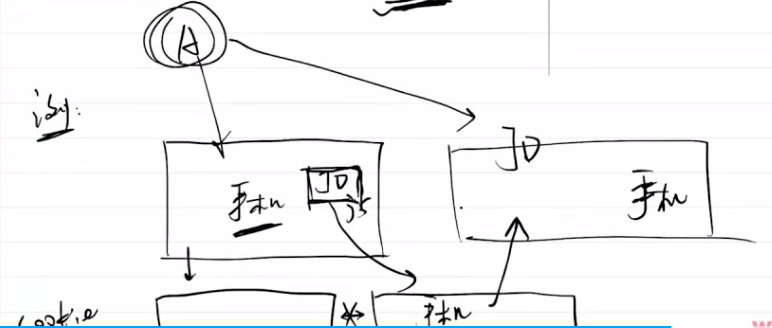 A
JD
手机
JD
js
手机
cookie
手机